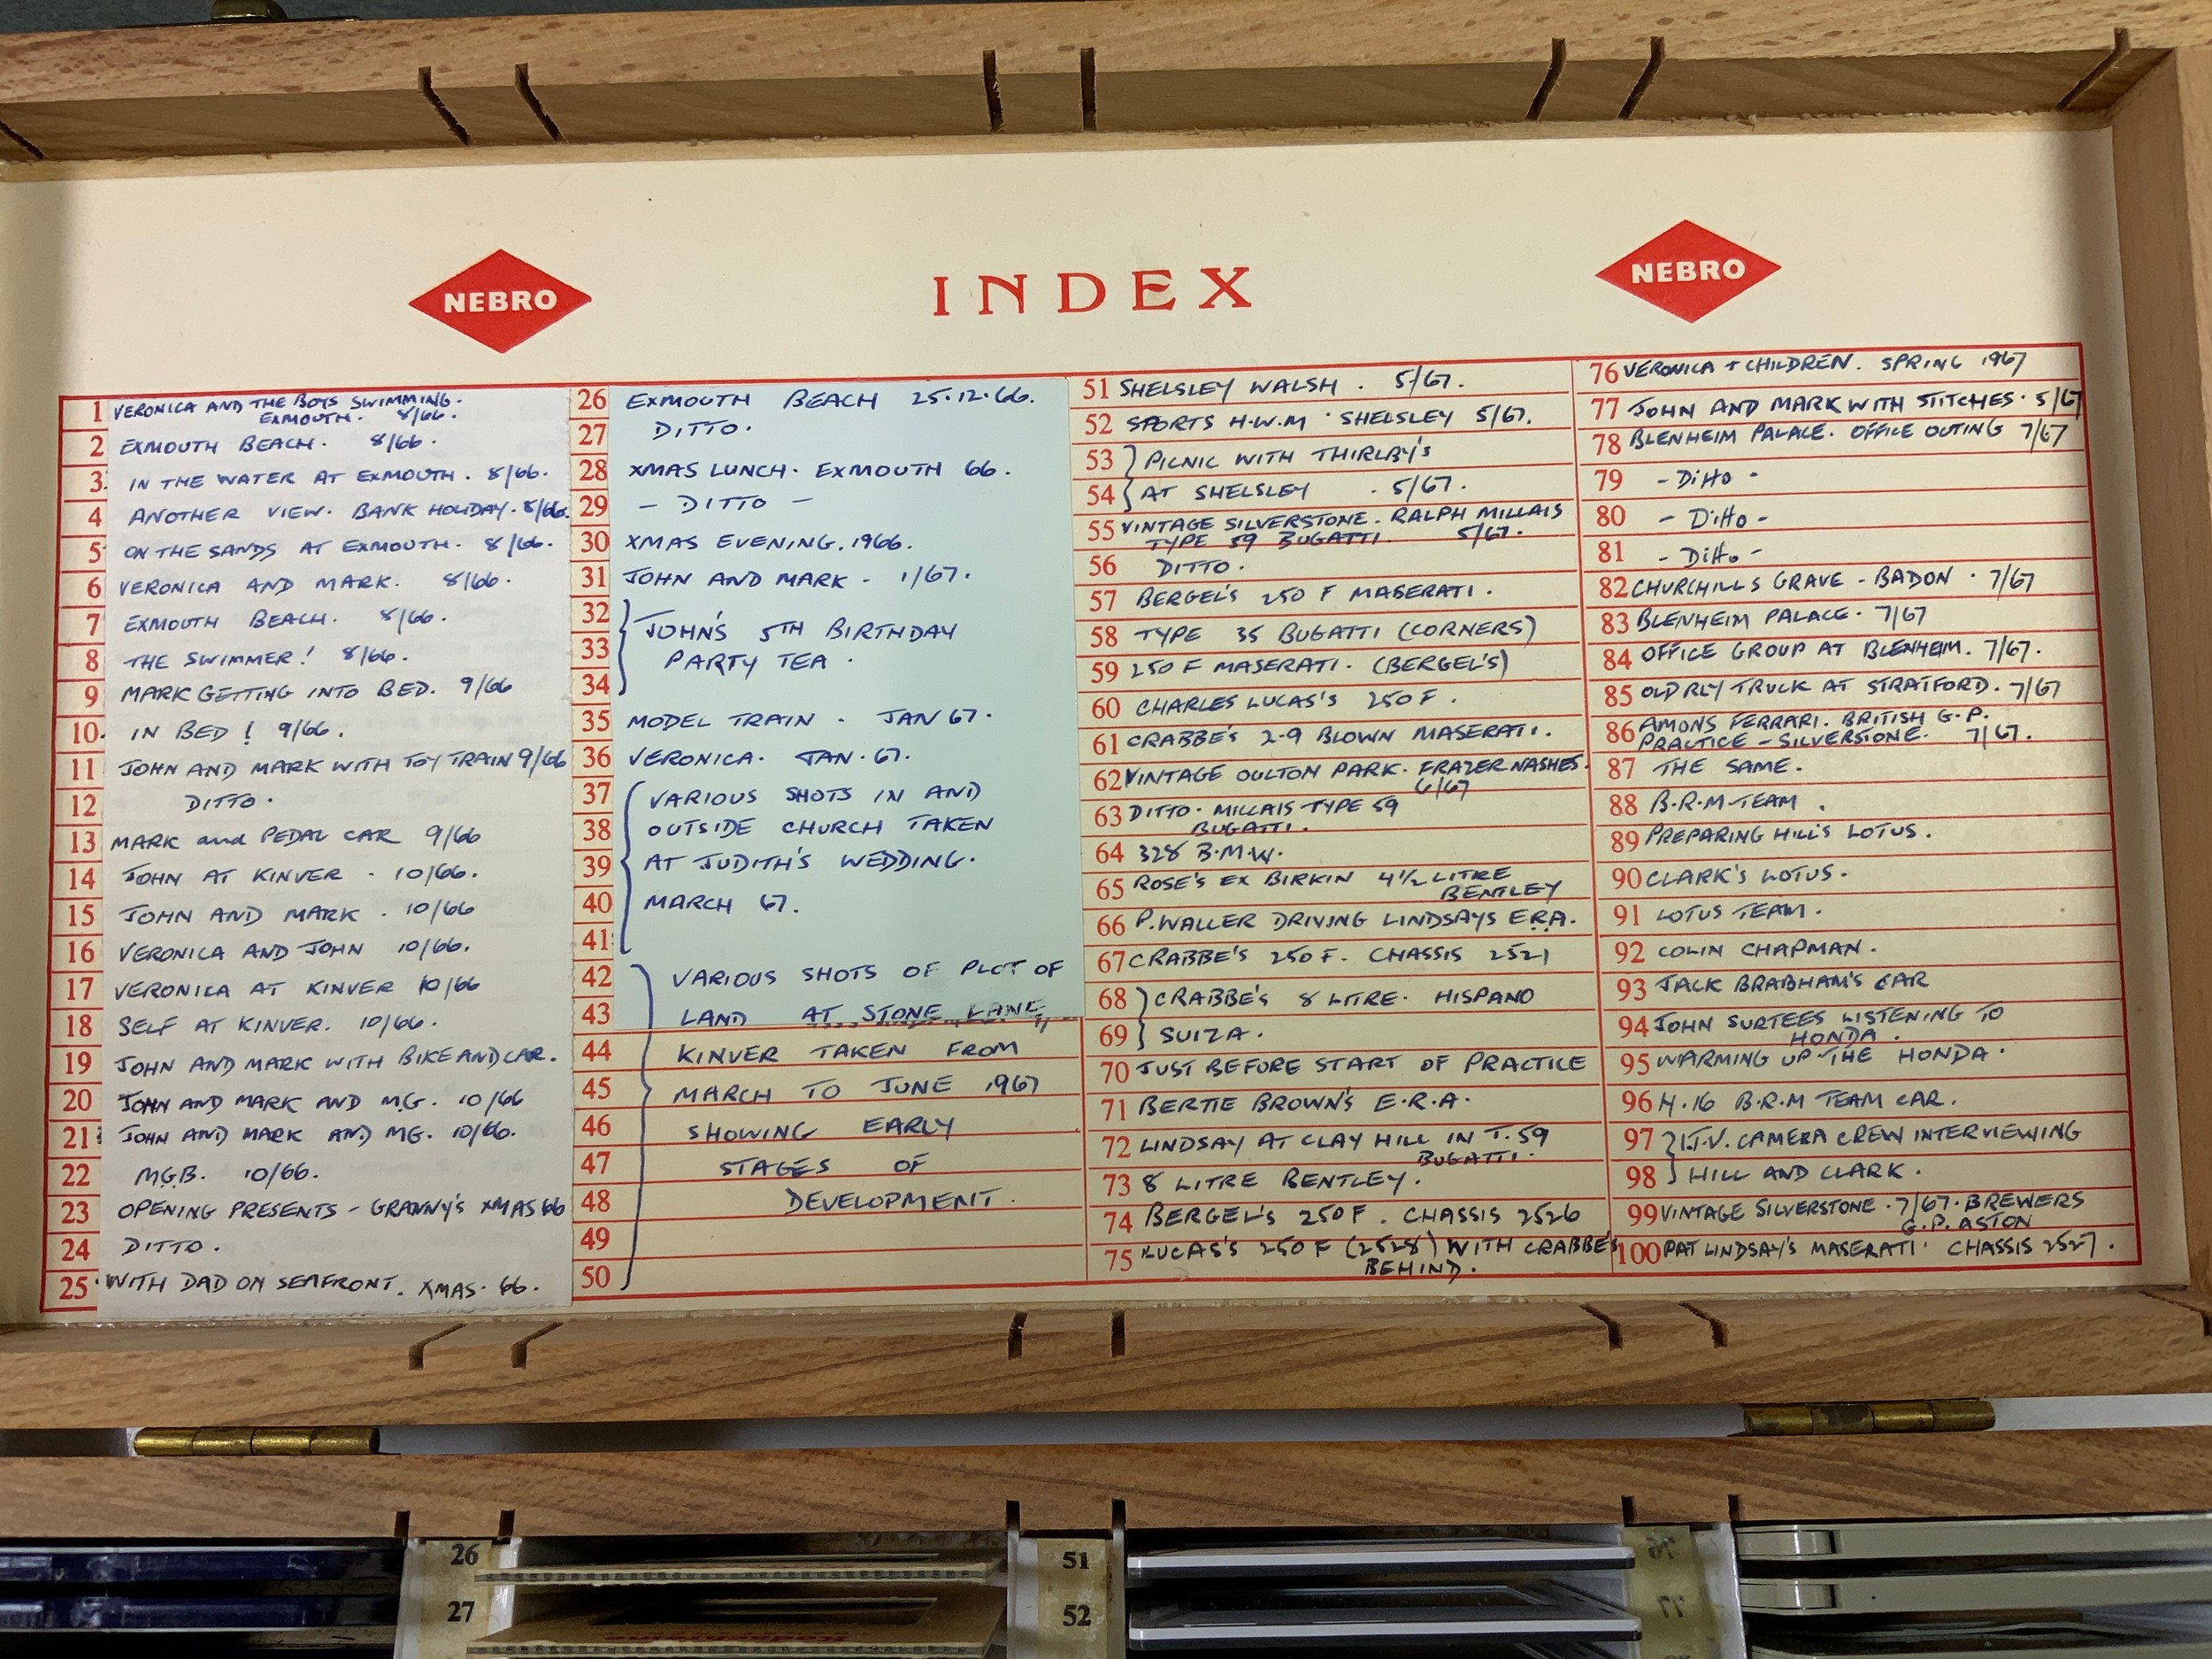 NEBRO
INDEX
NEBRO
1 VERONICA AND THE BOYS SWIMMING.
EXMOUTH. 8/66.
2 EXMOUTH BEACH. 8/66.
3 IN THE WATER AT EXMOUTH. 8/66.
4 ANOTHER VIEW. BANK HOLIDAY. 8/66.
5 ON THE SANDS AT EXMOUTH. 8/66.
6 VERONICA AND MARK. 8/66.
7 EXMOUTH BEACH. 8/66.
8 THE SWIMMER! 8/66.
9 MARK GETTING INTO BED. 9/66
10 IN BED! 9/66.
11 JOHN AND MARK WITH TOY TRAIN 9/66
12 DITTO.
13 MARK and PEDAL CAR 9/66
14 JOHN AT KINVER - 10/66.
15 JOHN AND MARK . 10/66
16 VERONICA AND JOHN 10/66.
17 VERONICA AT KINVER 10/66
18 SELF AT KINVER. 10/66.
19 JOHN AND MARK WITH BIKE AND CAR.
20 JOHN AND MARK AND M.G. 10/66
21 JOHN AND MARK AND MG. 10/66.
22 M.G.B. 10/66.
23 OPENING PRESENTS - GRANNY'S XMAS 66
24 DITTO.
25 WITH DAD ON SEAFRONT. XMAS. 66.
26 EXMOUTH BEACH 25.12.66.
27 DITTO.
28 XMAS LUNCH. EXMOUTH 66.
29 - DITTO -
30 XMAS EVENING. 1966.
31 JOHN AND MARK - 1/67.
32
33 JOHN'S 5TH BIRTHDAY
34 PARTY TEA.
35 MODEL TRAIN . JAN 67.
36 VERONICA. JAN. 67.
37 VARIOUS SHOTS IN AND
38 OUTSIDE CHURCH TAKEN
39 AT JUDITH'S WEDDING.
40 MARCH 67.
41
42 VARIOUS SHOTS OF PLOT OF
43 LAND AT STONE LANE
44 KINVER TAKEN FROM
45 MARCH TO JUNE 1967
46 SHOWING EARLY
47 STAGES OF
48 DEVELOPMENT.
49
50
51 SHELSLEY WALSH . 5/67.
52 SPORTS H.W.M . SHELSLEY 5/67.
53 PICNIC WITH THIRLBY'S
54 AT SHELSLEY . 5/67.
55 VINTAGE SILVERSTONE. RALPH MILLAIS
TYPE 59 BUGATTI. 5/67.
56 DITTO.
57 BERGEL'S 250 F MASERATI.
58 TYPE 35 BUGATTI (CORNERS)
59 250 F MASERATI. (BERGEL'S)
60 CHARLES LUCAS'S 250 F.
61 CRABBE'S 2.9 BLOWN MASERATI.
62 VINTAGE OULTON PARK. FRAZER NASHES.
6/67
63 DITTO. MILLAIS TYPE 59
BUGATTI.
64 328 B.M.W.
65 ROSE'S EX BIRKIN 4½ LITRE
BENTLEY
66 P. WALLER DRIVING LINDSAYS E.R.A.
67 CRABBE'S 250 F. CHASSIS 2521
68 CRABBE'S 8 LITRE. HISPANO
69 SUIZA.
70 JUST BEFORE START OF PRACTICE
71 BERTIE BROWN'S E.R.A.
72 LINDSAY AT CLAY HILL IN T.59
BUGATTI.
73 8 LITRE BENTLEY.
74 BERGEL'S 250 F. CHASSIS 2526
75 LUCAS'S 250 F (2528) WITH CRABBE'S
BEHIND.
76 VERONICA + CHILDREN. SPRING 1967
77 JOHN AND MARK WITH STITCHES. 5/67
78 BLENHEIM PALACE. OFFICE OUTING 7/67
79 - Ditto -
80 - Ditto -
81 - Ditto -
82 CHURCHILLS GRAVE - BADON . 7/67
83 BLENHEIM PALACE. 7/67
84 OFFICE GROUP AT BLENHEIM. 7/67.
85 OLD RLY TRUCK AT STRATFORD. 7/67
86 AMONS FERRARI. BRITISH G.P.
PRACTICE - SILVERSTONE. 7/67.
87 THE SAME.
88 B.R.M TEAM .
89 PREPARING HILL'S LOTUS.
90 CLARK'S LOTUS.
91 LOTUS TEAM.
92 COLIN CHAPMAN.
93 JACK BRABHAM'S CAR
94 JOHN SURTEES LISTENING TO
HONDA.
95 WARMING UP THE HONDA.
96 H.16 B.R.M TEAM CAR.
97 I.T.V. CAMERA CREW INTERVIEWING
98 HILL AND CLARK.
99 VINTAGE SILVERSTONE . 7/67. BREWERS
G.P. ASTON
100 PAT LINDSAY'S MASERATI. CHASSIS 2527.
26
27
51
52
76
77
Kodachrome